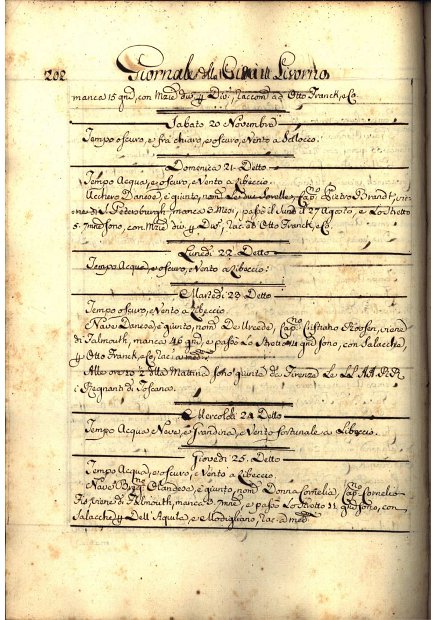 202 Giornale della Città di Livorno
manca 15 gni, con Mzie div., p Div., Raccom. ad Otto Franck, e Co.
Sabato 20 Novembre
Tempo oscuro, e frà chiaro, e oscuro, e Vento a
Domenica 21. Detto
Tempo Acqua, e oscuro, e Vento a Libeccio.
Danese, è giunto, nom. Le due Sorelle, Capno Pietro Brandt, viene
di S. Petersburgh, manca 3 Mesi, passò il Sund il 27 Agosto, e Lo Stretto
5. sono, con Mzie div., p Div., Rac. ad Otto Franck, e Co.
Lunedì 22. Detto
Tempo Acqua, e oscuro, e Vento a Libeccio:
Martedì 23 Detto
Tempo oscuro, e Vento a Libeccio
Nave Danese è giunto, nom. Capno Roosen, viene
di Falmouth, manca 46 gni, e passò Lo Stretto gni sono, con Salacche,
p Otto Franck, e Co, Rac. a med.
Alle ore 10 2 della Mattina sono quì giunti da Firenze Le LL. AA. RR.
i Regnanti di Toscana.
Mercoldì 24 Detto
Tempo Acqua, Neve, e Grandina, e Vento fortunale a Libeccio.
Giovedì 25. Detto
Tempo Acqua, e oscuro, e Vento a Libeccio.
Nave Olandese, è giunto, nom. Donna Cornelia, Capno Cornelio
viene di Falmouth, manca e passò Lo Stretto 11 gni sono, con
Salacche, p Dell'Aquila, e Modigliano, Rac. a med.